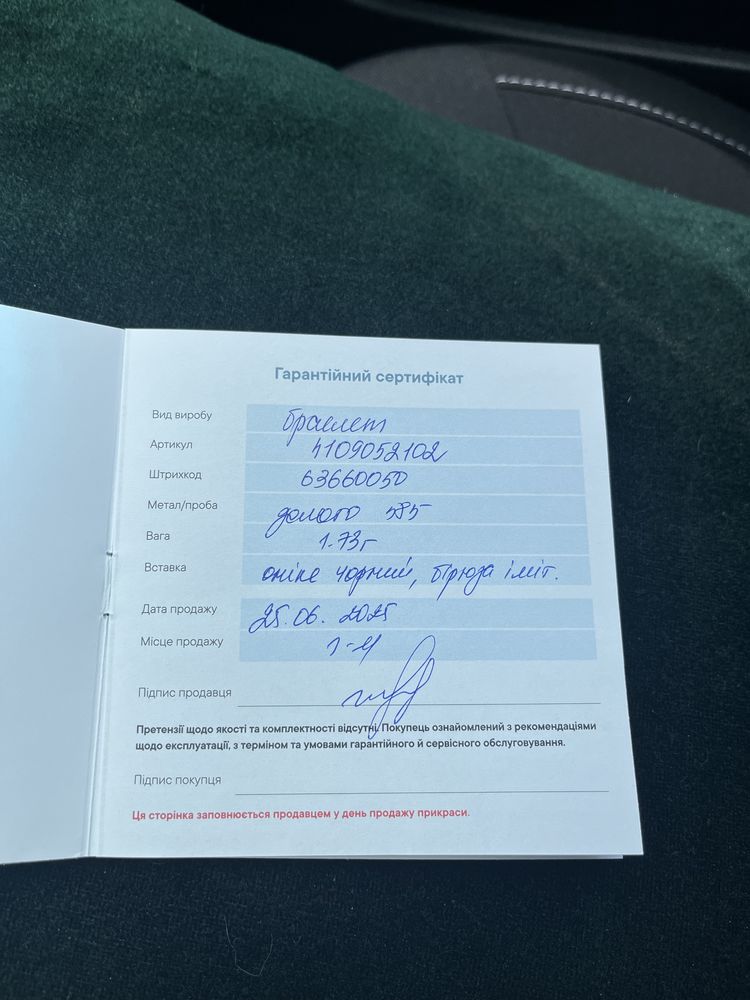 Гарантійний сертифікат
Вид виробу браслет
Артикул 4109052102
Штрихкод 63660050
Метал/проба золото 585
Вага 1.73г
Вставка онікс чорний, бірюза іміт.
Дата продажу 25.06.2025
Місце продажу
Підпис продавця
Претензії щодо якості та комплектності відсутні. Покупець ознайомлений з рекомендаціями
щодо експлуатації, з терміном та умовами гарантійного й сервісного обслуговування.
Підпис покупця
Ця сторінка заповнюється продавцем у день продажу прикраси.